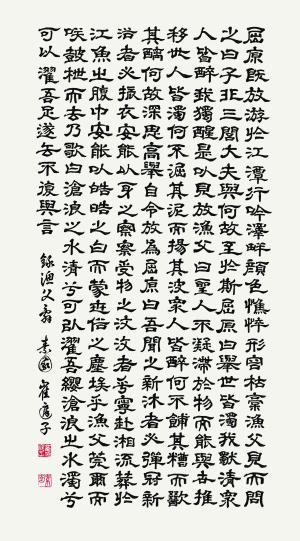 屈原既放游於江潭行吟澤畔顏色憔悴形容枯槁漁父見而問
之曰子非三閭大夫與何故至於斯屈原曰舉世皆濁我獨清眾
人皆醉我獨醒是以見放漁父曰聖人不凝滯於物而能與世推
移世人皆濁何不淈其泥而揚其波眾人皆醉何不餔其糟而歠
其醨何故深思高舉自令放為屈原曰吾聞之新沐者必彈冠新
浴者必振衣安能以身之察察受物之汶汶者乎寧赴湘流葬於
江魚之腹中安能以皓皓之白而蒙世俗之塵埃乎漁父莞爾而
咲鼓枻而去乃歌曰滄浪之水清兮可以濯吾纓滄浪之水濁兮
可以濯吾足遂去不復與言 錄漁父 崔 子